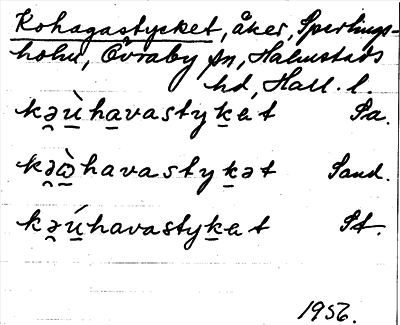 Kohagastycket, åker, Sperlings-
holm, Övraby sn, Halmstads
hd, Hall. l.
kə̯ù̱ha̱vastyḵet Pa.
kə̯ὼ̱havastyḵət Sand.
kə̯ú̱havastyḵet St.
1956.